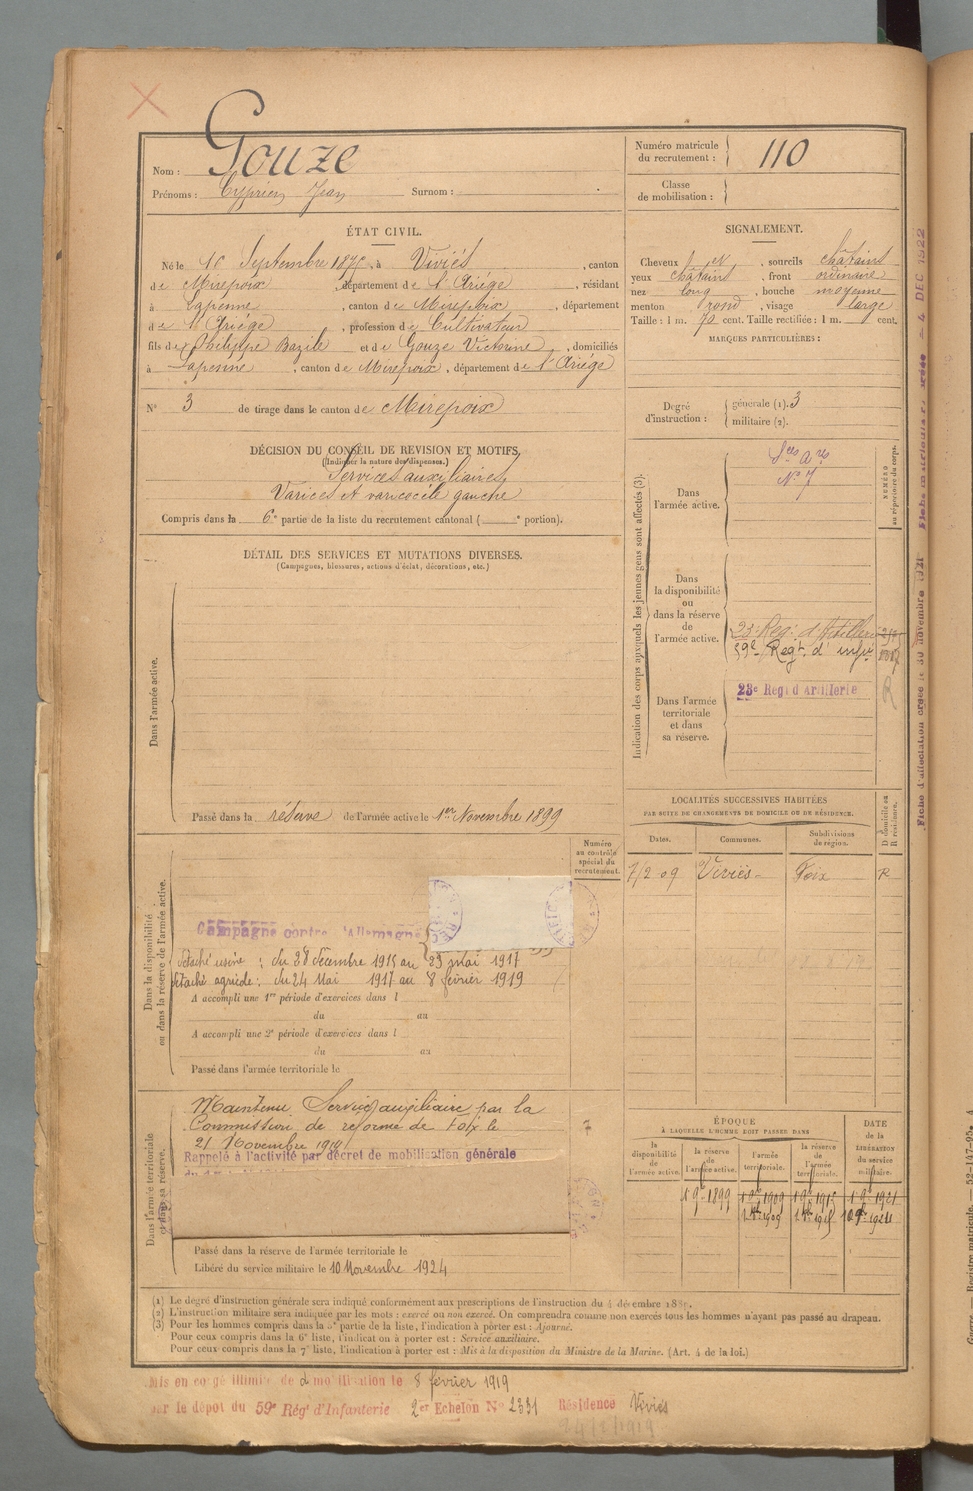 Nom : Gouze
Prénoms : Cyprien Jean Surnom :
Numéro matricule du recrutement : 110
Classe de mobilisation :
ÉTAT CIVIL.
Né le 16 Septembre 1875, à Viviès, canton
de Mirepoix, département de l'Ariége, résidant
à Lapenne, canton de Mirepoix, département
de l'Ariége, profession de Cultivateur
fils de Philippe Bazile et de Gouze Victorine, domiciliés
à Lapenne, canton de Mirepoix, département de l'Ariége
N° 3 de tirage dans le canton de Mirepoix
SIGNALEMENT.
Cheveux et, sourcils châtains
yeux châtains, front ordinaire
nez long, bouche moyenne
menton rond, visage large
Taille : 1 m. 70 cent. Taille rectifiée : 1 m. cent.
MARQUES PARTICULIÈRES :
Degré d'instruction :
générale (1). 3
militaire (2).
DÉCISION DU CONSEIL DE REVISION ET MOTIFS.
(Indiquer la nature des dispenses.)
Services auxiliaires
Varices et varicocèle gauche
Compris dans la 6e partie de la liste du recrutement cantonal ( e portion).
DÉTAIL DES SERVICES ET MUTATIONS DIVERSES.
(Campagnes, blessures, actions d'éclat, décorations, etc.)
Dans l'armée active.
Passé dans la réserve de l'armée active le 1er Novembre 1899
Indication des corps auxquels les jeunes gens sont affectés (3).
NUMÉRO au répertoire du corps.
Dans l'armée active.
Sces Ares
N° 7
Dans la disponibilité ou dans la réserve de l'armée active.
23e Reg. d'Artillerie
59e Regt d'infie
R
Dans l'armée territoriale et dans sa réserve.
23e Regt d'Artillerie
Fiche d'affectation créée le 30 novembre 1921
Fiche matriculaire créée - 4 DEC 1922
LOCALITÉS SUCCESSIVES HABITÉES
PAR SUITE DE CHANGEMENTS DE DOMICILE OU DE RÉSIDENCE.
D domicile ou R résidence.
Dates. Communes. Subdivisions de région.
7/2 09 Viviès Foix R
Dans la disponibilité ou dans la réserve de l'armée active.
Numéro au contrôle spécial du recrutement.
Campagne contre l'Allemagne
Détaché usine : du 28 décembre 1915 au 23 mai 1917
Détaché agricole : du 24 Mai 1917 au 8 février 1919
A accompli une 1re période d'exercices dans l
du au
A accompli une 2e période d'exercices dans l
du au
Passé dans l'armée territoriale le
Dans l'armée territoriale et dans sa réserve.
Maintenu Service auxiliaire par la
Commission de réforme de Foix le
21 Novembre 1914
Rappelé à l'activité par décret de mobilisation générale
Passé dans la réserve de l'armée territoriale le
Libéré du service militaire le 10 Novembre 1924
ÉPOQUE
À LAQUELLE L'HOMME DOIT PASSER DANS
DATE de la LIBÉRATION du service militaire.
la disponibilité de l'armée active. la réserve de l'armée active. l'armée territoriale. la réserve de l'armée territoriale.
(1) Le degré d'instruction générale sera indiqué conformément aux prescriptions de l'instruction du 4 décembre 1889.
(2) L'instruction militaire sera indiquée par les mots : exercé ou non exercé. On comprendra comme non exercés tous les hommes n'ayant pas passé au drapeau.
(3) Pour les hommes compris dans la 5e partie de la liste, l'indication à porter est : Ajourné.
Pour ceux compris dans la 6e liste, l'indication à porter est : Service auxiliaire.
Pour ceux compris dans la 7e liste, l'indication à porter est : Mis à la disposition du Ministre de la Marine. (Art. 4 de la loi.)
Mis en congé illimité de démobilisation le 8 février 1919
par le dépôt du 59e Régt d'Infanterie 2er Echelon N° 2331 Résidence Viviès
24/2/1919